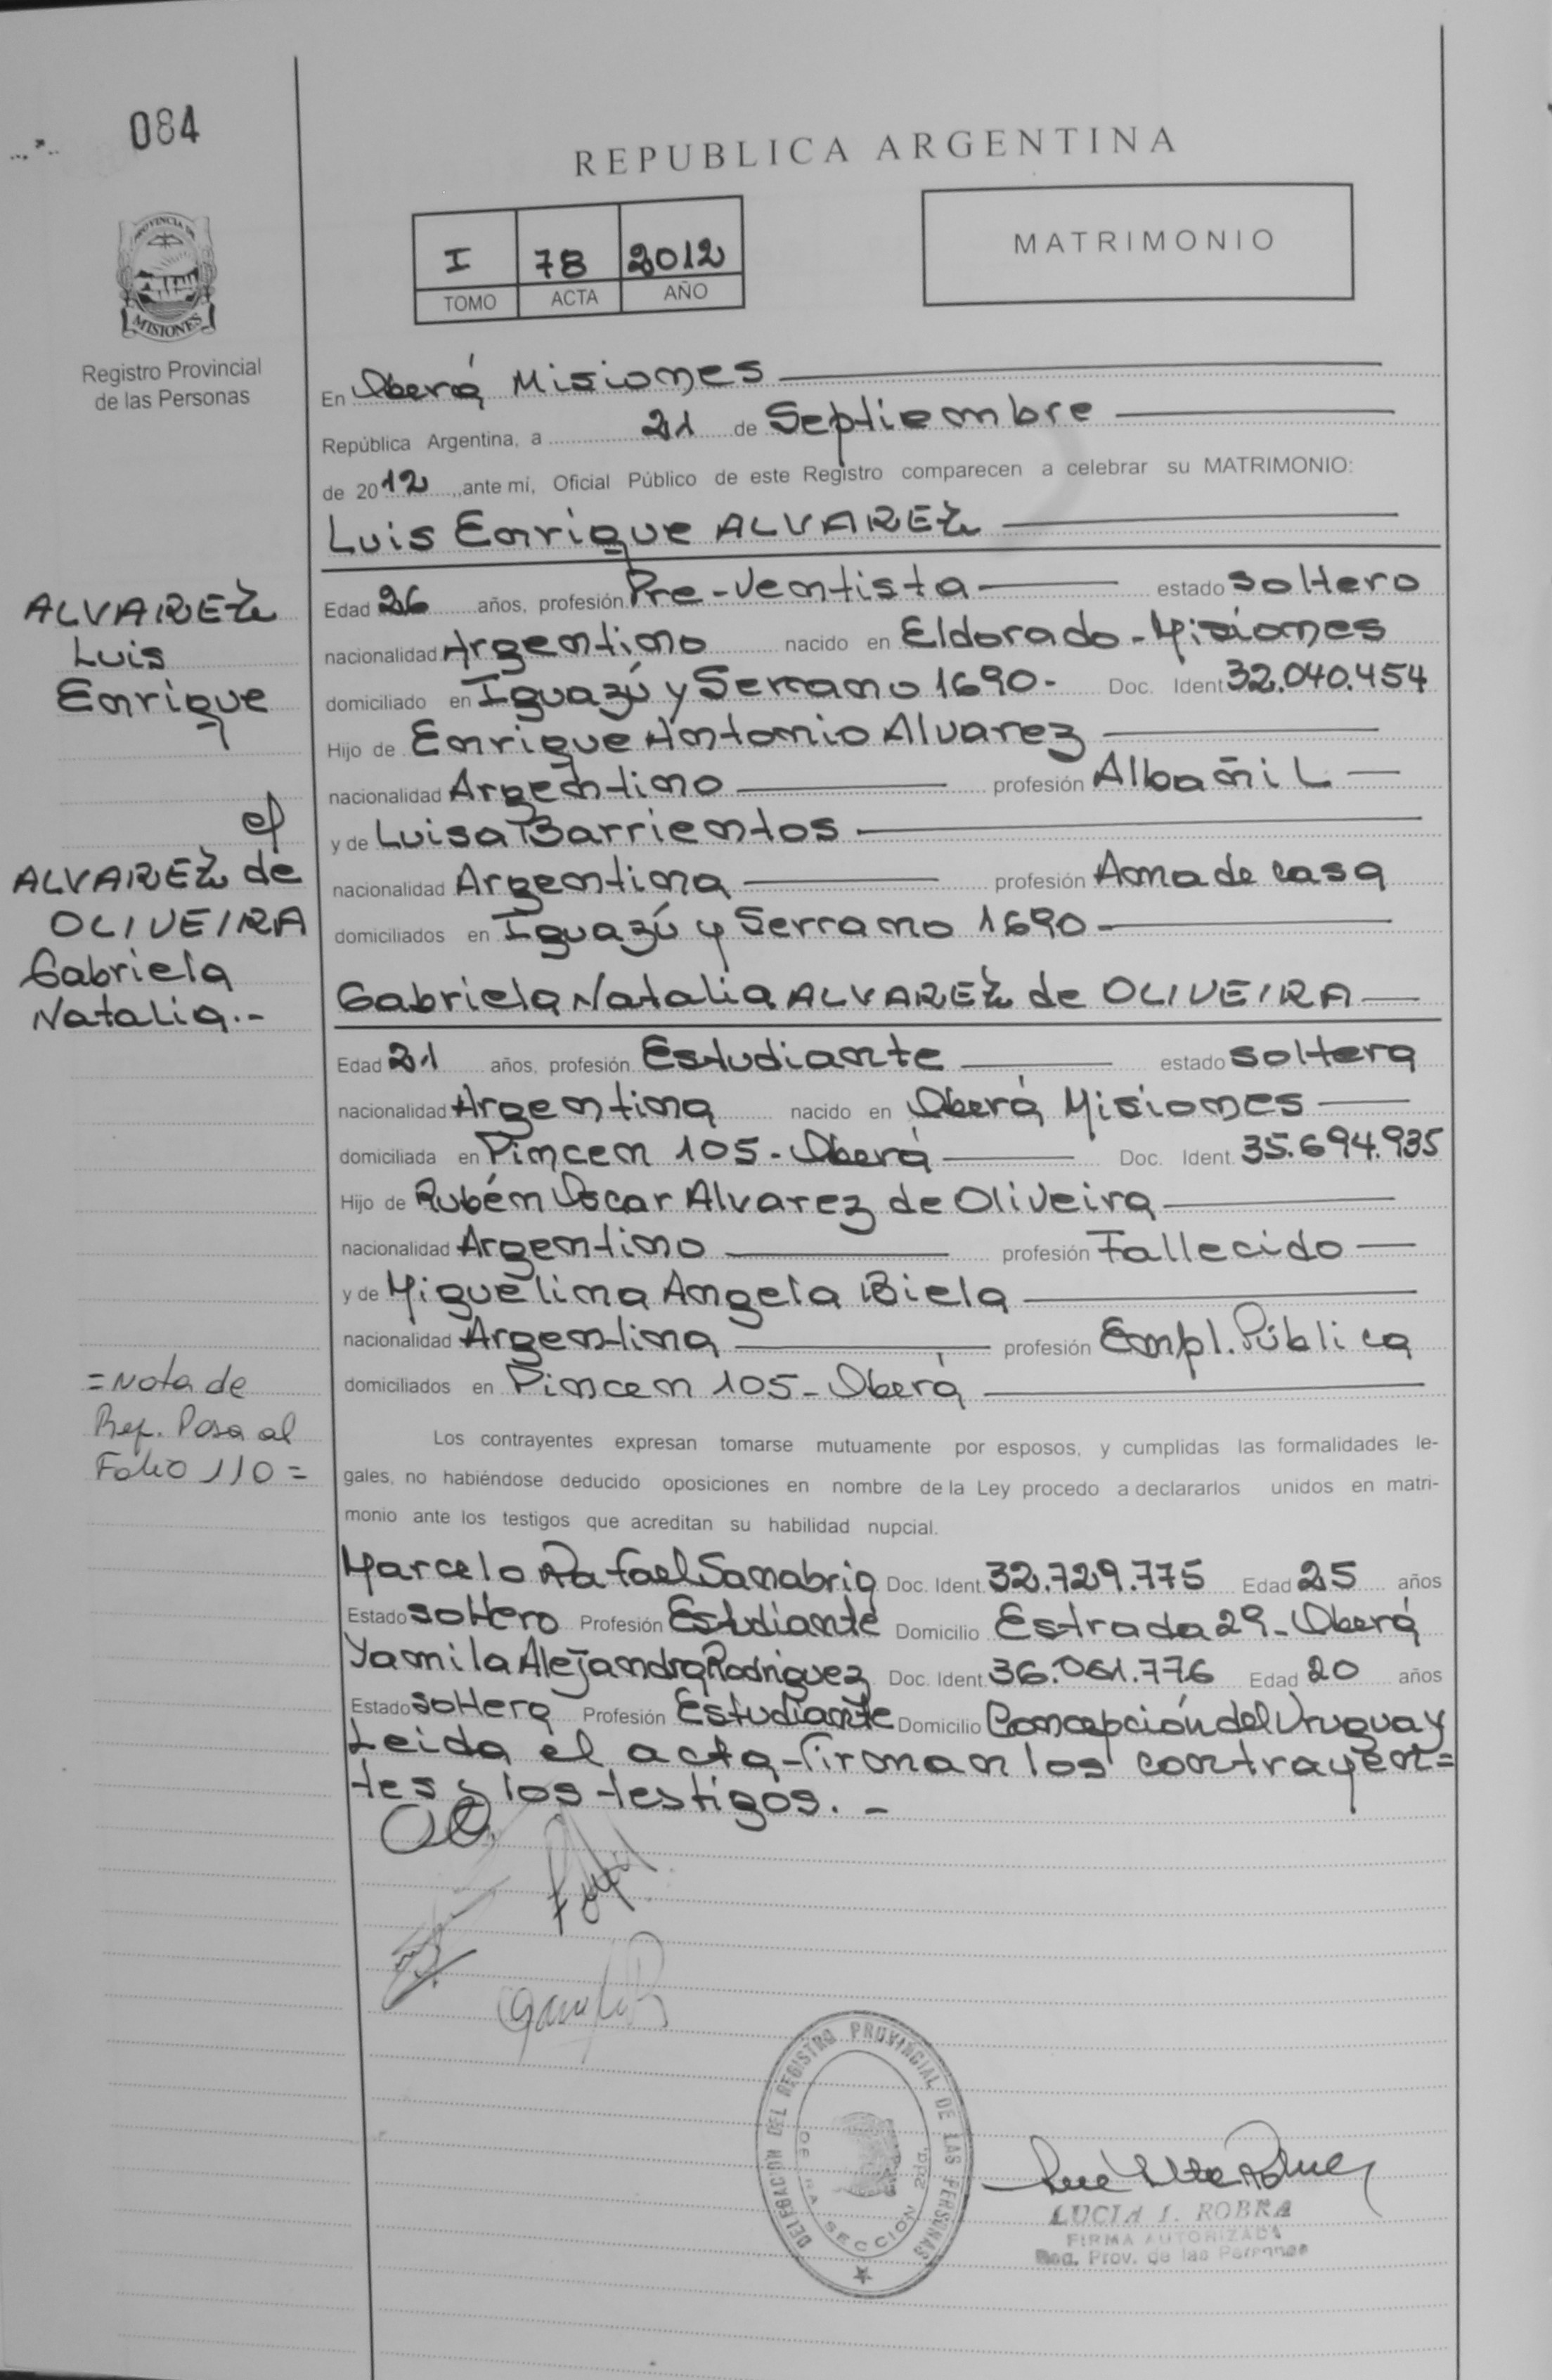 084
REPUBLICA ARGENTINA
I 78 2012
TOMO ACTA AÑO
MATRIMONIO
PROVINCIA DE
MISIONES
Registro Provincial
de las Personas
En Oberá Misiones
República Argentina, a 21 de Septiembre
de 2012, ante mí, Oficial Público de este Registro comparecen a celebrar su MATRIMONIO:
Luis Enrique ALVAREZ
Edad 26 años, profesión Pre-Ventista estado soltero
nacionalidad Argentino nacido en Eldorado - Misiones
domiciliado en Iguazú y Serrano 1690- Doc. Ident 32.040.454
Hijo de Enrique Antonio Alvarez
nacionalidad Argentino profesión Albañil
y de Luisa Barrientos
nacionalidad Argentina profesión Ama de casa
domiciliados en Iguazú y Serrano 1690-
Gabriela Natalia ALVAREZ de OLIVEIRA
Edad 21 años, profesión Estudiante estado soltera
nacionalidad Argentina nacido en Oberá Misiones
domiciliada en Pincen 105- Oberá Doc. Ident. 35.694.935
Hijo de Rubén Oscar Alvarez de Oliveira
nacionalidad Argentino profesión Fallecido
y de Miguelina Angela Biela
nacionalidad Argentina profesión Empl. Pública
domiciliados en Pincen 105- Oberá
Los contrayentes expresan tomarse mutuamente por esposos, y cumplidas las formalidades le-
gales, no habiéndose deducido oposiciones en nombre de la Ley procedo a declararlos unidos en matri-
monio ante los testigos que acreditan su habilidad nupcial.
Marcelo Rafael Sanabria Doc. Ident. 32.729.775 Edad 25 años
Estado soltero Profesión Estudiante Domicilio Estrada 29- Oberá
Yamila Alejandra Rodriguez Doc. Ident. 36.061.776 Edad 20 años
Estado soltera Profesión Estudiante Domicilio Concepción del Uruguay
Leida el acta firman los contrayen=
tes y los testigos.-
ALVAREZ
Luis
Enrique
ALVAREZ de
OLIVEIRA
Gabriela
Natalia.-
=Nota de
Ref. Pasa al
Folio 110=
DELEGACION DEL REGISTRO PROVINCIAL DE LAS PERSONAS
SECCION 2da.
LUCIA I. ROBRA
FIRMA AUTORIZADA
Reg. Prov. de las Personas